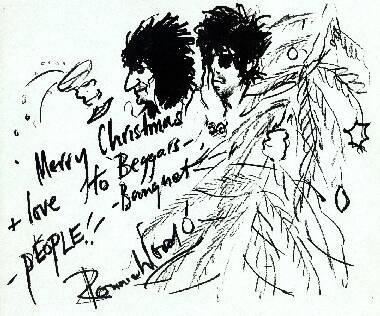 Merry Christmas
+ love to Beggars -
- Banquet -
- PEOPLE!! -
Ronnie Wood!